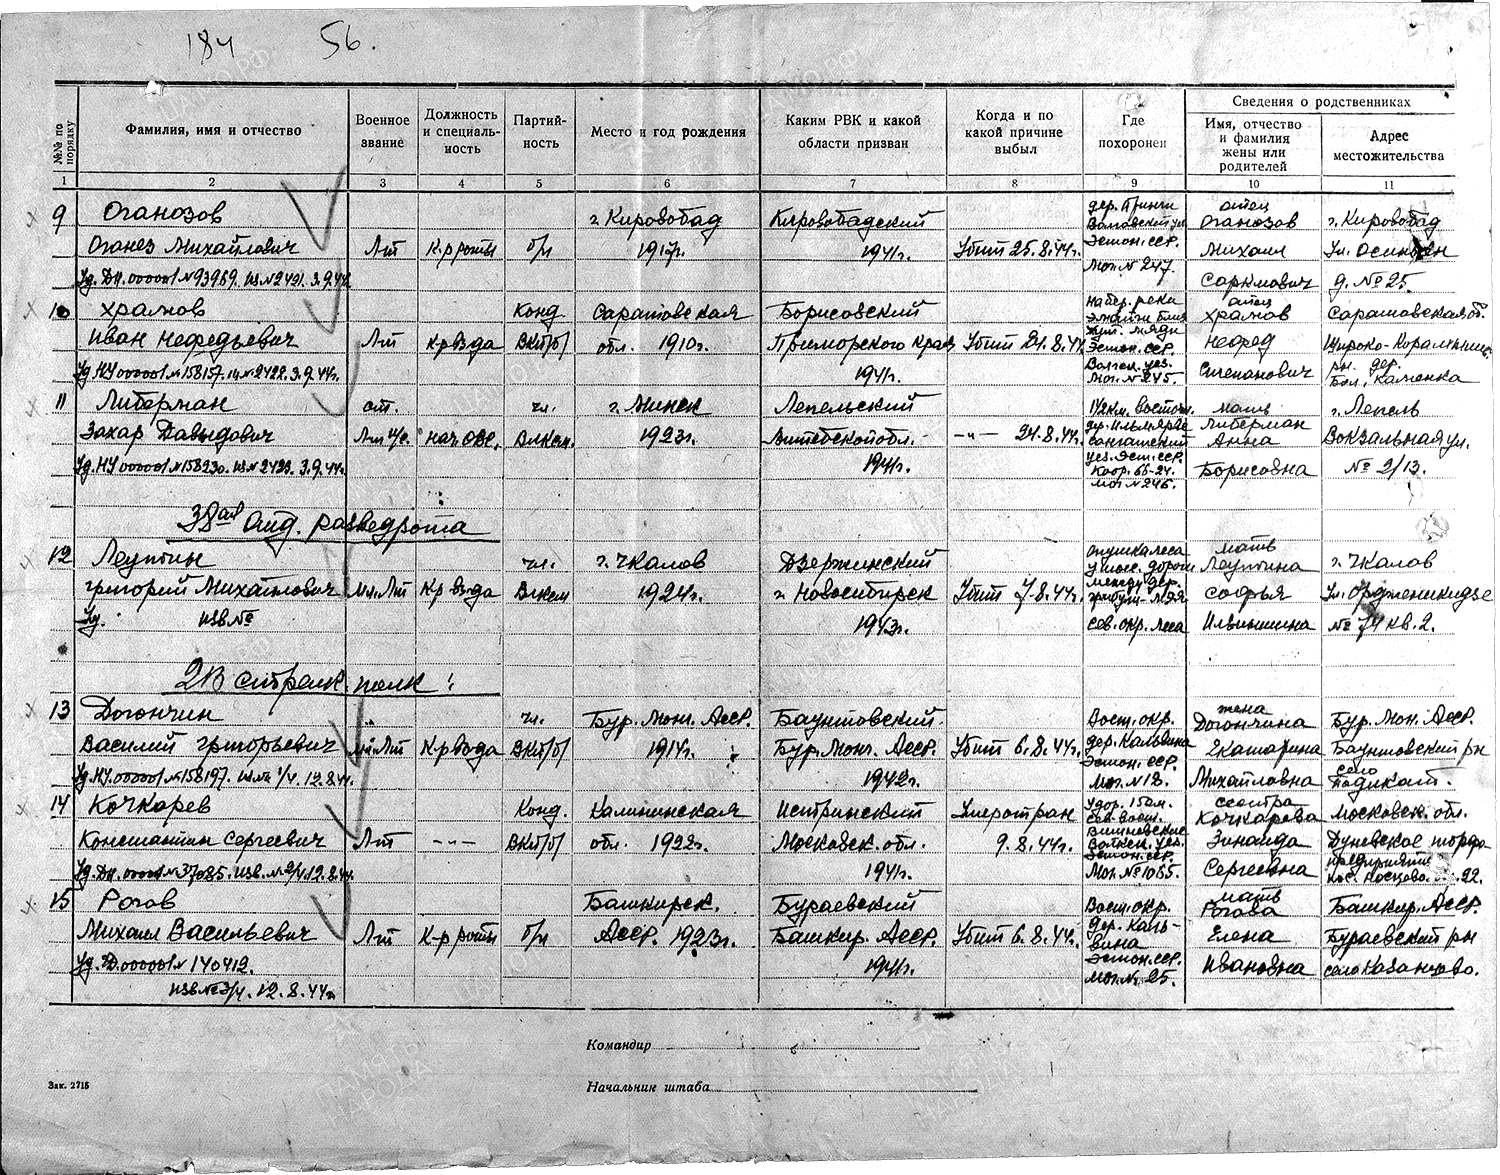 184 56.
Сведения о родственниках
№№ по порядку
Фамилия, имя и отчество
Военное звание
Должность и специаль-ность
Партий-ность
Место и год рождения
Каким РВК и какой области призван
Когда и по какой причине выбыл
Где похоронен
Имя, отчество и фамилия жены или родителей
Адрес местожительства
1 2 3 4 5 6 7 8 9 10 11
9 Оганозов г. Кировобад Кировобадский дер. отец Оганозов г. Кировобад
Оганез Михайлович Лт К-р роты б/п 1917г. 1941г. Убит 25.8.44г. Эстон. сср. Михаил ул. Осипян
Уд. ДН.000001 №93969. изв №2421. 3.9.44г. Мог. № 247. Саркисович д. № 25.
10 Храмов Конд Саратовская Борисовский набер. реки отец Храмов Саратовская об.
Иван Нефедьевич Лт К-р взвода ВКП/б/ обл. 1910г. Приморского края Убит 24.8.44 Эстон. сср. Нефед
Уд. НУ 000001 №158157. изв №2422. 3.9.44г. 1941г. Мог. № 245. Степанович рн. дер. Бол. Каменка
11 Либерман ст. чл. г. Минск Лепельский 1/2 км. восточ. мать Либерман г. Лепель
Захар Давыдович Лт нач. Влксм. 1923г. Витебской обл. -"- 24.8.44г. Анна Вокзальная ул.
Уд. НУ 000001 №158230. изв №2423. 3.9.44г. 1941г. уез. Эст. сср. Коор. 66-24. мог №246. Борисовна № 2/13.
38ая Отд. разведрота
12 Леуптин чл. г. Чкалов Дзержинский опушка леса мать Леуптина г. Чкалов
Григорий Михайлович Мл. Лт К-р взвода Влксм 1924г. г. Новосибирск Убит 7.8.44г. между дер. Софья ул. Орджоникидзе
Уд. изв № 1943г. сев. окр. леса Ильинична № 74 кв. 2.
28 стрелк. полк:
13 Догончин чл. Бур. Мон. Асср. Баунтовский Вост. окр. жена Догончина Бур. Мон. Асср.
Василий Григорьевич мл. Лт К-р взвода ВКП/б/ 1914г. Бур. Монг. Асср. Убит 6.8.44г. дер. Кальвина Эстон. сср. Екатерина Баунтовский рн
Уд. НУ.000001 №158197. изв № 1/4. 12.8.44г. 1942г. Мог. № 18. Михайловна село
14 Кочкарев Конд. Калининская Истринский Умер от ран сев. вост. сестра Кочкарева Московск. обл.
Константин Сергеевич Лт -"- ВКП/б/ обл. 1922г. Московск. обл. 9.8.44г. Эстон. сср. Зинаида торфо
Уд. ДН.000001 №37085. изв. № 2/4. 12.8.44г. 1941г. Мог. № 1055. Сергеевна предприятие
15 Рогов Башкирск. Бураевский Вост. окр. мать Рогова Башкир. Асср.
Михаил Васильевич Лт К-р роты б/п Асср. 1923г. Башкир. Асср. Убит 6.8.44г. дер. Каль-вина Елена Бураевский рн
Уд. Д.000001 № 140412. 1941г. Эстон. сср. Мог. № 25. Ивановна село Казанцево.
изв № 3/4. 12.8.44г.
Командир
Начальник штаба
Зак. 2715